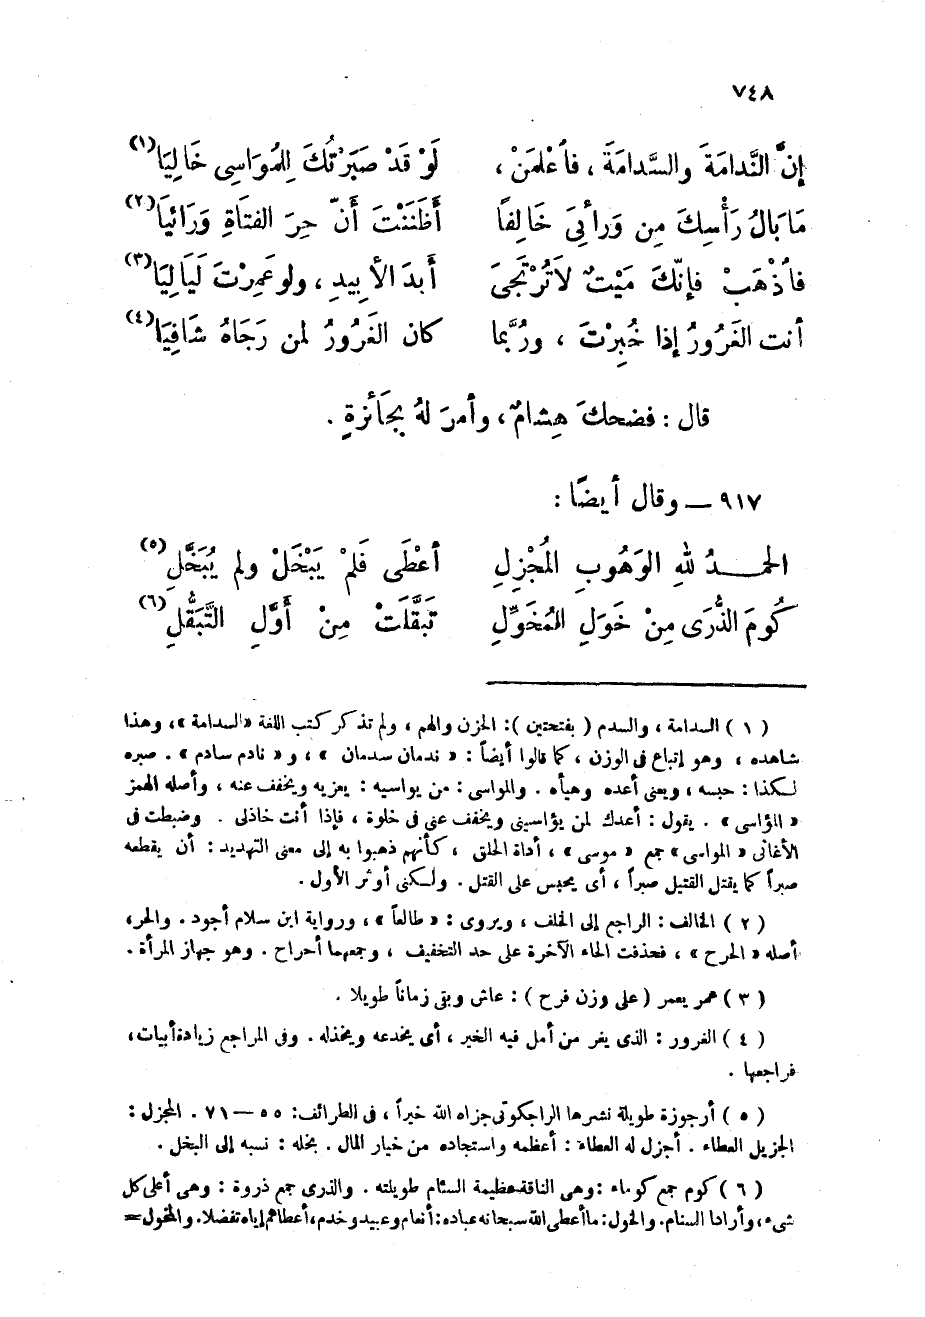 ٧٤٨
إِنَّ النَّدَامَةَ والسَّدامَةَ ، فاَعْلمَنْ ، لَوْ قَدْ صَبَرْتُكَ لِلمُوَاسِى خَالِيَا(١)
مَا بَالُ رَأْسِكَ مِن وَرَأَئِىَ خَالِفاً أَظَنَنْتَ أَنَّ حِرَ الفتَاةِ وَرَائيَا(٢)
فاَذْهَبْ فإنّكَ مَيْتٌ لاَ تُرْتَجَىَ أَبدَ الأبِيدِ ، ولو عَمِرْتَ لَيَالِيَا(٣)
أنت الغَرُورُ إذا خُبِرْتَ ، ورُبَّما كان الغَرُورُ لمن رَجَاهُ شَافِيَا(٤)
قال : فضحكَ هِشامٌ ، وأمرَ لهُ بجَأئزةٍ .
٩١٧ — وقال أيضًا :
الحمـــدُ للهِ الوَهُوبِ المُجْزِلِ أعْطَى فَلمْ يَبْخَلْ ولم يُبَخَّلِ(٥)
كُومَ الذُّرَى مِنْ خَوَلِ المُخَوِّلِ تَبَقَّلَتْ مِنْ أَوَّلِ التَّبَقُّلِ(٦)
( ١ ) السدامة ، والسدم ( بفتحتين ) : الحزن والهم ، ولم تذكر كتب اللغة « السدامة » ، وهذا
شاهده ، وهو إتباع فى الوزن ، كما قالوا أيضاً : « ندمان سدمان » ، و « نادم سادم » . صبره
لكذا : حبسه ، ويعنى أعده وهيأه . والمواسى : من يواسيه : يعزيه ويخفف عنه ، وأصله الهمز
« المؤاسى » . يقول : أعدك لمن يؤاسينى ويخفف عنى فى خلوة ، فإذا أنت خاذلى . وضبطت فى
الأغانى « المواسى » جمع « موسى » ، أداة الحلق ، كأنهم ذهبوا به إلى معنى التهديد : أن يقطعه
صبراً كما يقتل القتيل صبراً ، أى يحبس على القتل . ولكنى أوثر الأول .
( ٢ ) الخالف : الراجع إلى الخلف ، ويروى : « طالعاً » ، ورواية ابن سلام أجود . والحر ،
أصله « الحرح » ، فحذفت الحاء الآخرة على حد التخفيف ، وجمعهما أحراح . وهو جهاز المرأة .
( ٣ ) عمر يعمر ( على وزن فرح ) : عاش وبقى زماناً طويلا .
( ٤ ) الغرور : الذى يغر من أمل فيه الخير ، أى يخدعه ويخذله . وفى المراجع زيادة أبيات ،
فراجعها .
( ٥ ) أرجوزة طويلة نشرها الراجكوتى جزاه الله خيراً ، فى الطرائف : ٥٥ — ٧١ . المجزل :
الجزيل العطاء . أجزل له العطاء : أعظمه واستجاده من خيار المال . بخله : نسبه إلى البخل .
( ٦ ) كوم جمع كوماء : وهى الناقة عظيمة السنام طويلته . والذرى جمع ذروة : وهى أعلى كل
شىء ، وأرادا السنام . والخول : ما أعطى الله سبحانه عباده : أنعام وعبيد وخدم ، أعطاهم إياه تفضلا . والمخول =